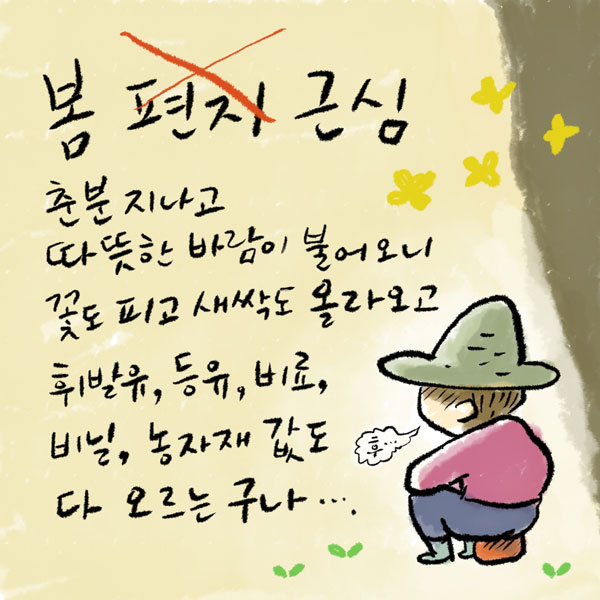 봄 편지 근심
춘분 지나고
따뜻한 바람이 불어오니
꽃도 피고 새싹도 올라오고
휘발유, 등유, 비료,
비닐, 농자재 값도
다 오르는구나...
후-